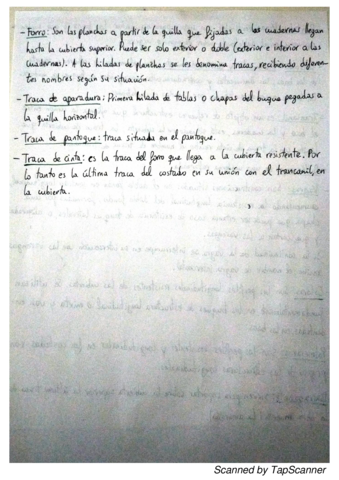 - Forro: Son las planchas a partir de la quilla que fijadas a las cuadernas llegan
hasta la cubierta superior. Puede ser solo exterior o doble (exterior e interior a las
cuadernas). A las hiladas de planchas se les denomina tracas, recibiendo diferen-
tes nombres según su situación.
- Traca de aparadura: Primera hilada de tablas o chapas del buque pegadas a
la quilla horizontal.
- Traca de pantoque: traca situada en el pantoque.
- Traca de cinta: es la traca del forro que llega a la cubierta resistente. Por
lo tanto es la última traca del costado en su unión con el trancanil, en
la cubierta.
Scanned by TapScanner